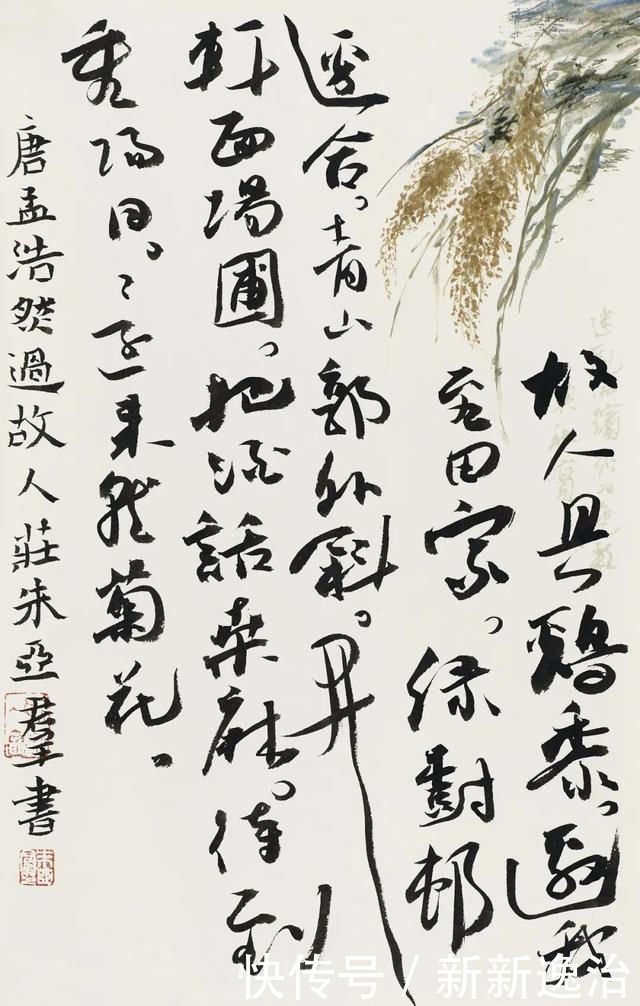 故人具鷄黍。邀我
至田家。綠樹邨
邊合。青山郭外斜。開
軒面場圃。把酒話桑麻。待到
重陽日。還來就菊花。
唐孟浩然過故人莊朱亞羣書
快传号 / 新新逸治